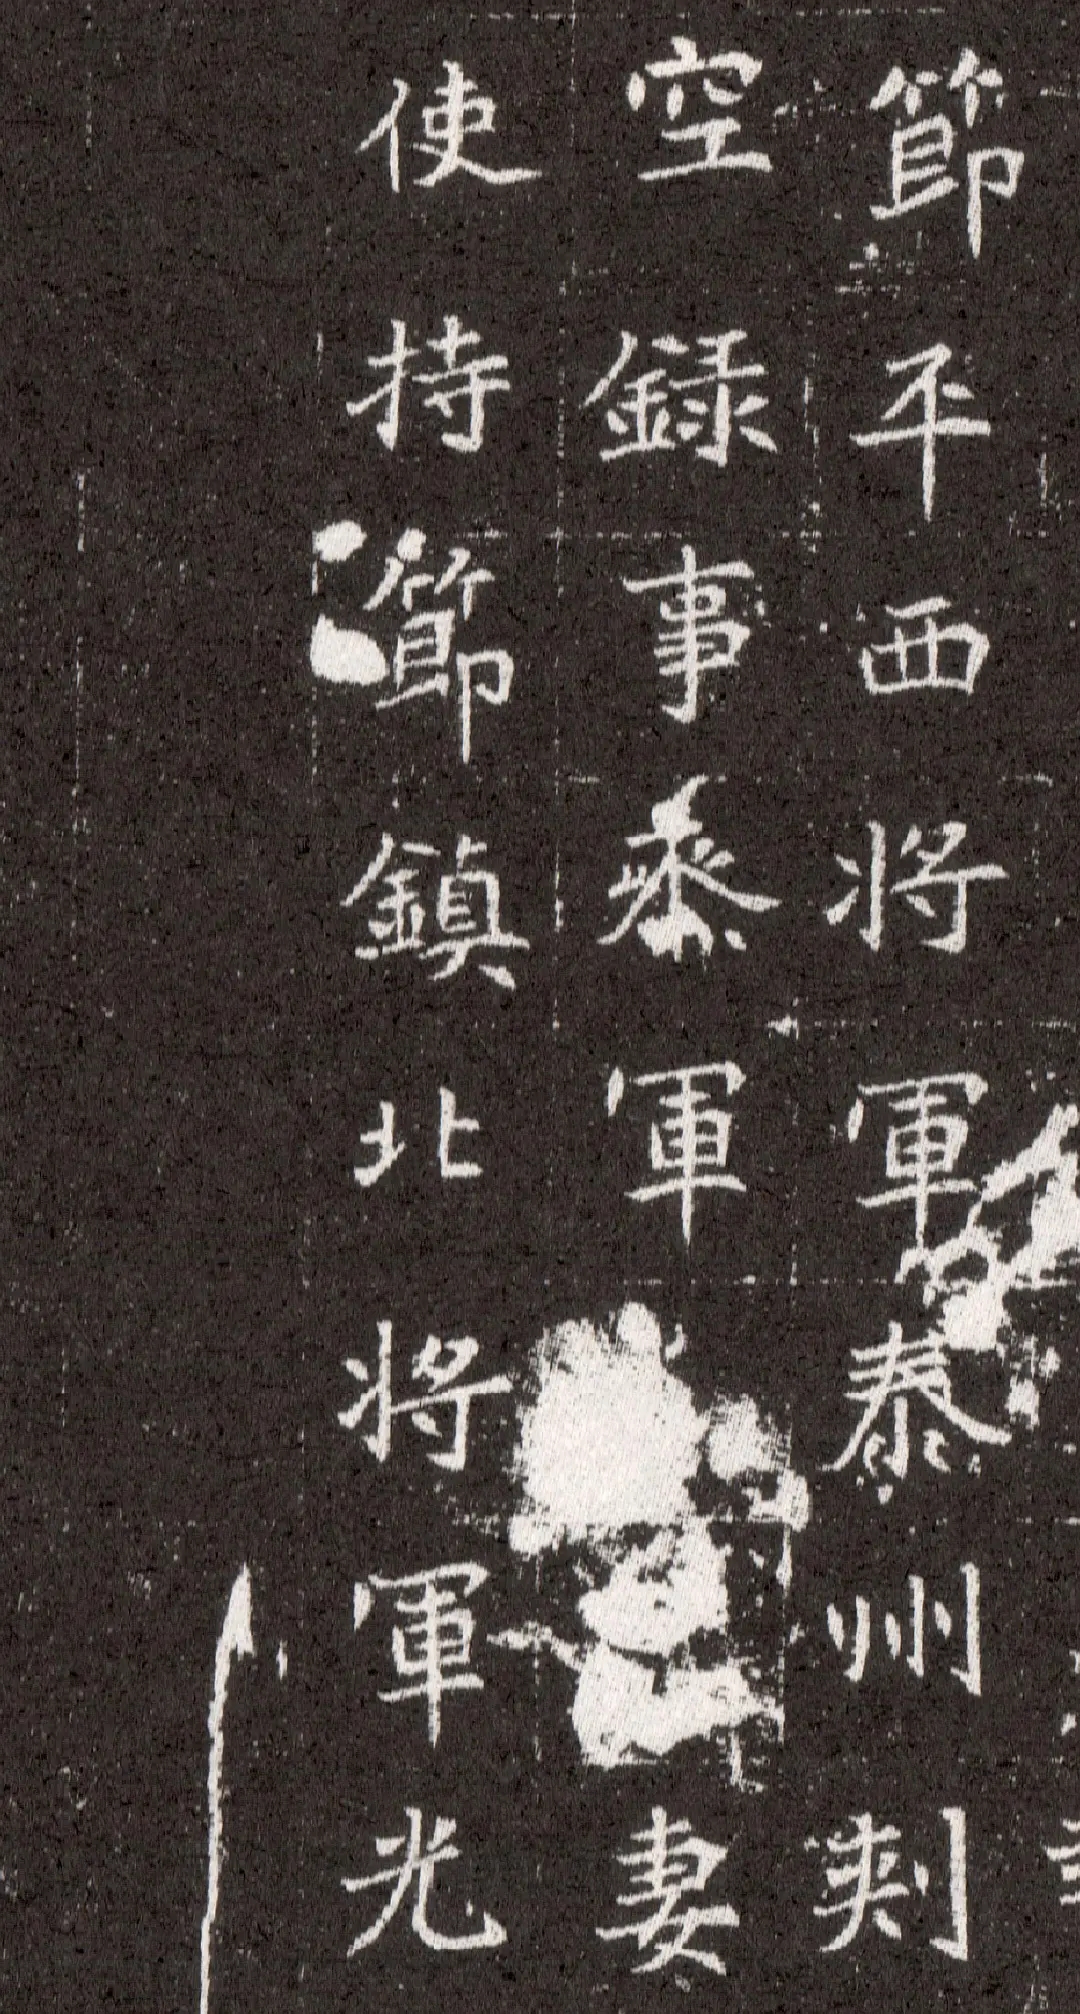 節平西将軍泰州刺
空録事叅軍妻
使持節鎮北将軍光